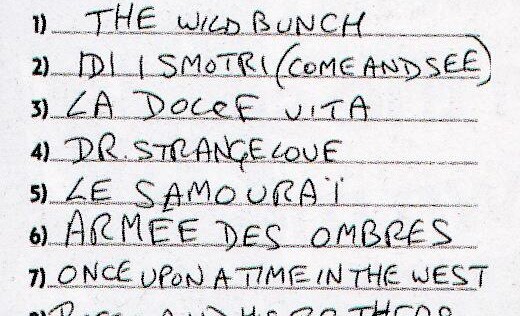 1) THE WILD BUNCH
2) IDI I SMOTRI (COME AND SEE)
3) LA DOLCE VITA
4) DR. STRANGELOVE
5) LE SAMOURAÏ
6) ARMÉE DES OMBRES
7) ONCE UPON A TIME IN THE WEST
AND HIS BROTHERS